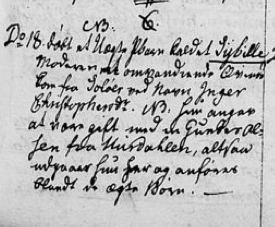 NB.
Do 18. døbt et Uægte Barn kaldet Sybille,
Moderen et omvandrende Qvinde
kom fra Soløer ved Navn Inger
Christophersdt. NB. hun angav
at være gift med en Gunder Ol-
sen fra Hurdahlen, altsaa
udgaaer hun her og anføres
blandt de ægte Børn.